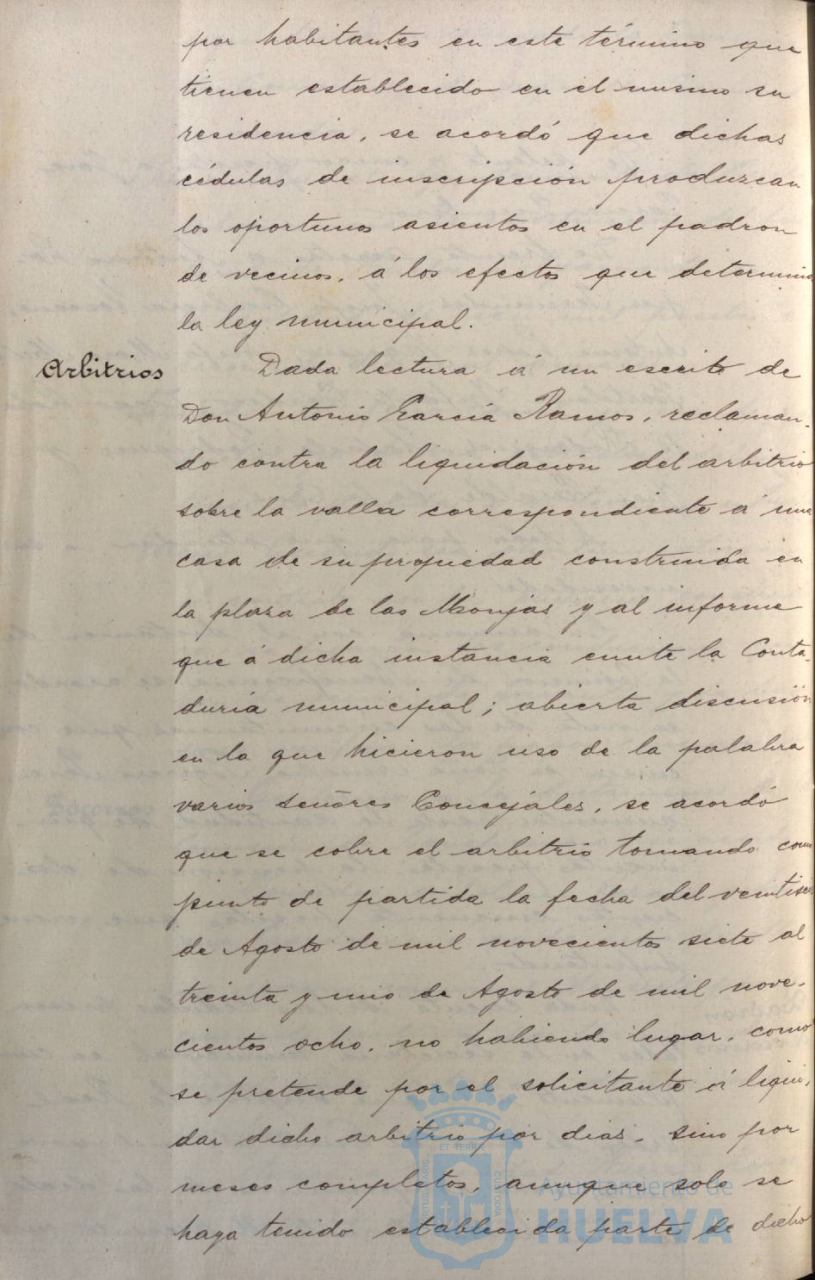 por habitantes en este término que
tienen establecido en el mismo su
residencia, se acordó que dichas
cédulas de inscripción produzcan
los oportunos asientos en el padron
de vecinos, á los efectos que determina
la ley municipal.
Arbitrios
Dada lectura á un escrito de
Don Antonio García Ramos, reclaman-
do contra la liquidación del arbitrio
sobre la valla correspondiente á una
casa de su propiedad construida en
la plaza de las Monjas y al informe
que á dicha instancia emite la Conta-
duría municipal; abierta discusión
en la que hicieron uso de la palabra
varios señores Concejales, se acordó
que se cobre el arbitrio tomando como
punto de partida la fecha del veintiseis
de Agosto de mil novecientos siete al
treinta y uno de Agosto de mil nove-
cientos ocho, no habiendo lugar, como
se pretende por el solicitante á liqui-
dar dicho arbitrio por dias, sino por
meses completos, aunque solo se
haya tenido establecida parte de dicho
Ayuntamiento de
HUELVA